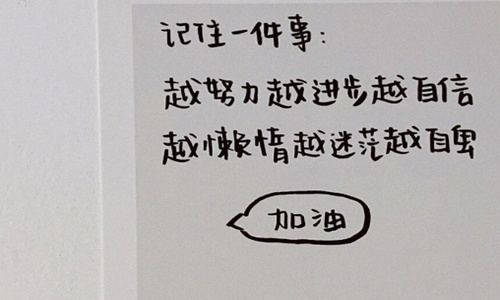 记住一件事:
越努力越进步越自信
越懒惰越迷茫越自卑
加油